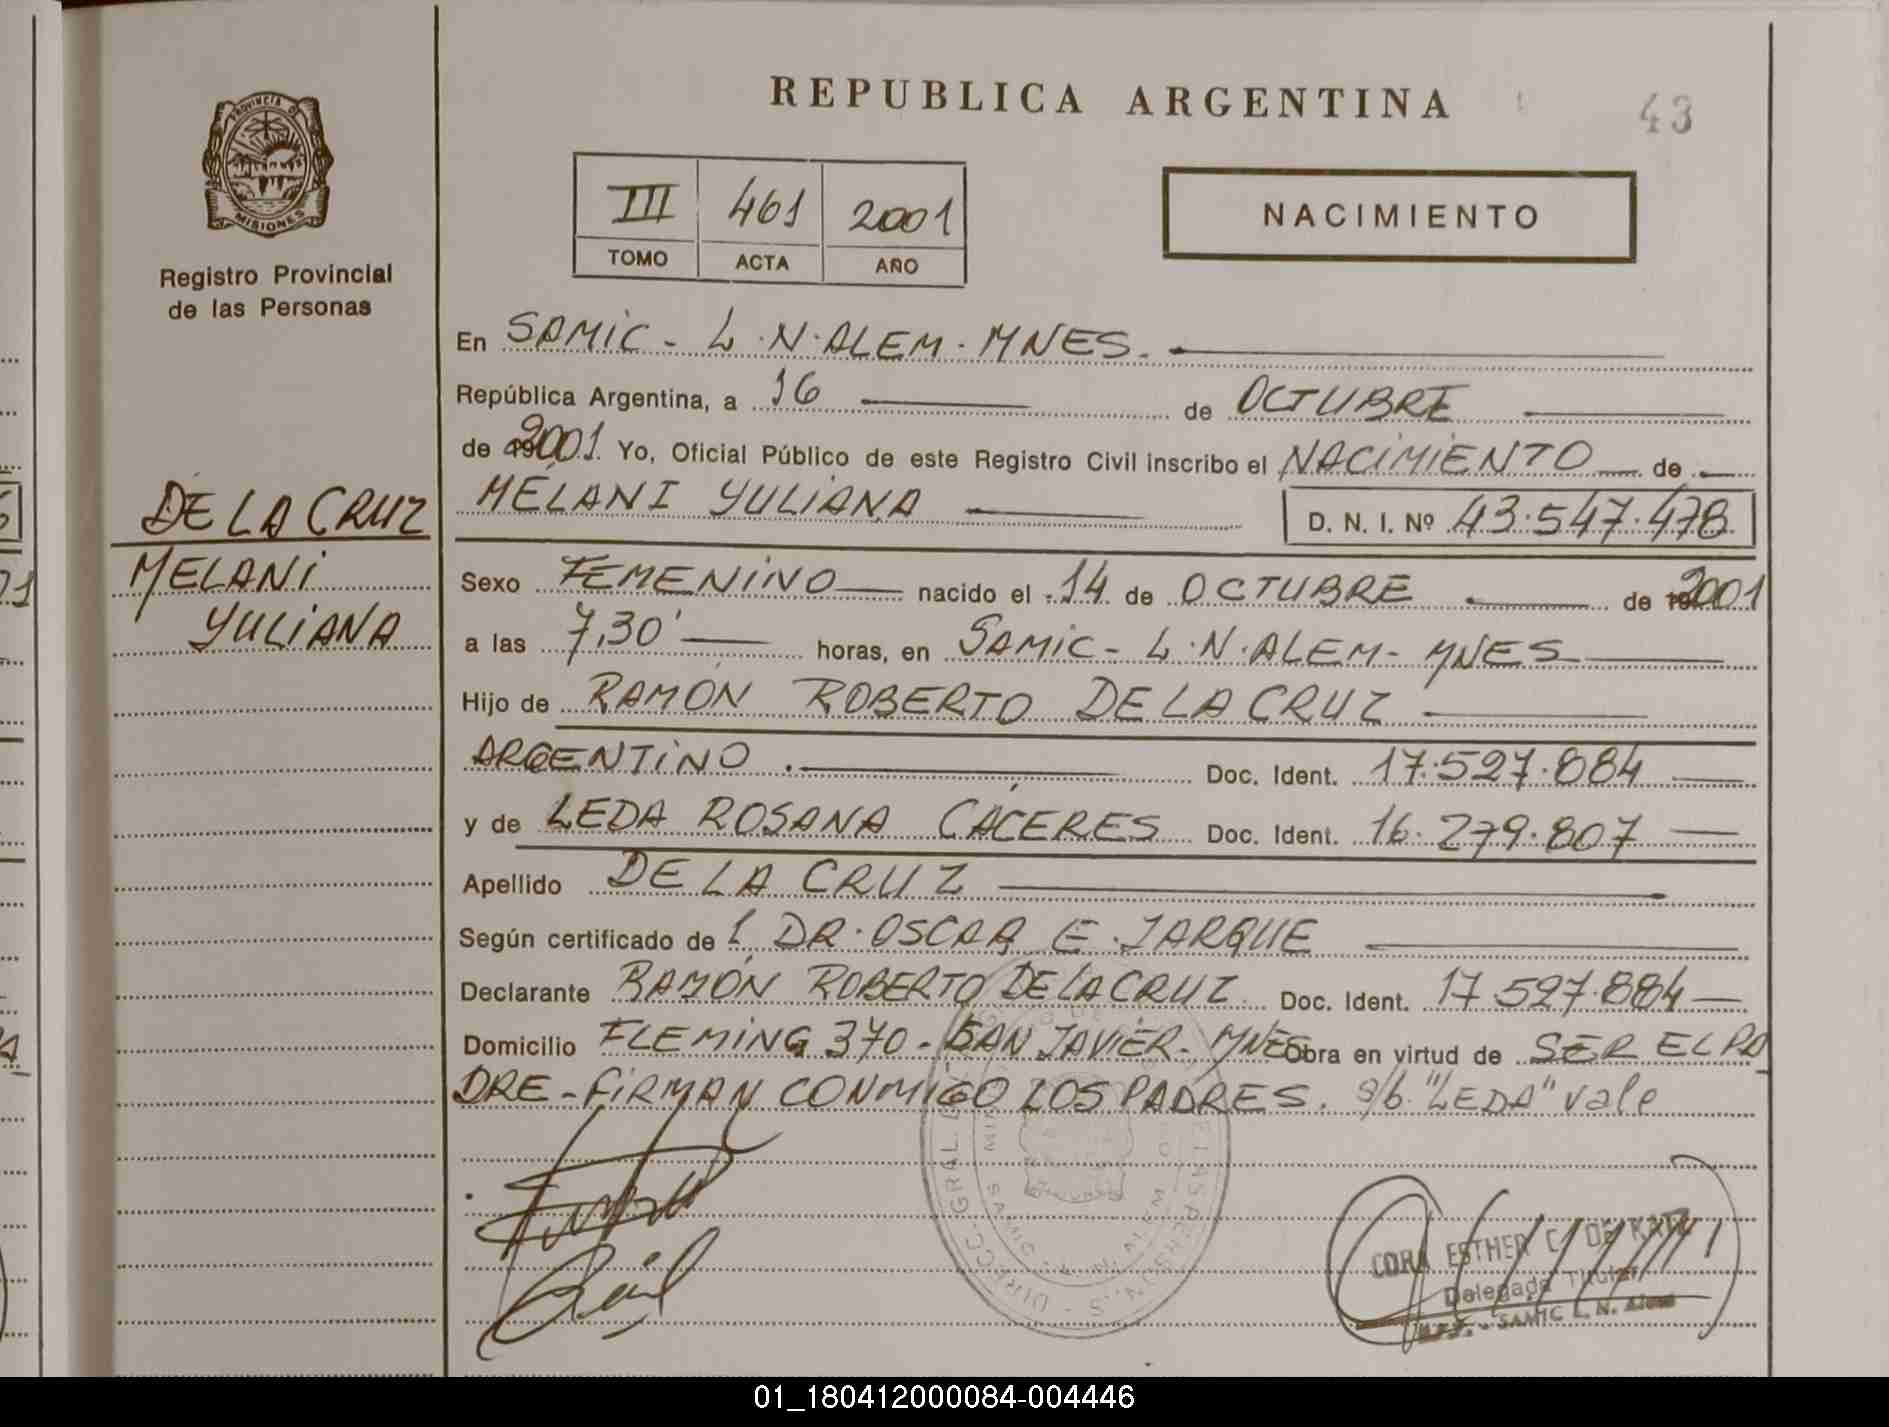 REPUBLICA ARGENTINA
43
PROVINCIA DE
MISIONES
Registro Provincial
de las Personas
III 461 2001
TOMO ACTA AÑO
NACIMIENTO
DE LA CRUZ
MELANI
YULIANA
En SAMIC - L.N. ALEM - MNES.
República Argentina, a 16 de OCTUBRE
de 2001. Yo, Oficial Público de este Registro Civil inscribo el NACIMIENTO de
MELANI YULIANA D. N. I. Nº 43.547.478
Sexo FEMENINO nacido el 14 de OCTUBRE de 2001
a las 7,30' horas, en SAMIC - L.N. ALEM - MNES
Hijo de RAMÓN ROBERTO DE LA CRUZ
ARGENTINO Doc. Ident. 17.527.884
y de LEDA ROSANA CÁCERES Doc. Ident. 16.279.807
Apellido DE LA CRUZ
Según certificado de DR. OSCAR E. JARQUE
Declarante RAMÓN ROBERTO DE LA CRUZ Doc. Ident. 17.527.884
Domicilio FLEMING 370 - SAN JAVIER - MNES Obra en virtud de SER EL PA
DRE - FIRMAN CONMIGO LOS PADRES. s/b "LEDA" vale
CORA ESTHER C. DE KATZ
Delegada Titular
SAMIC L. N. Alem
01_180412000084-004446